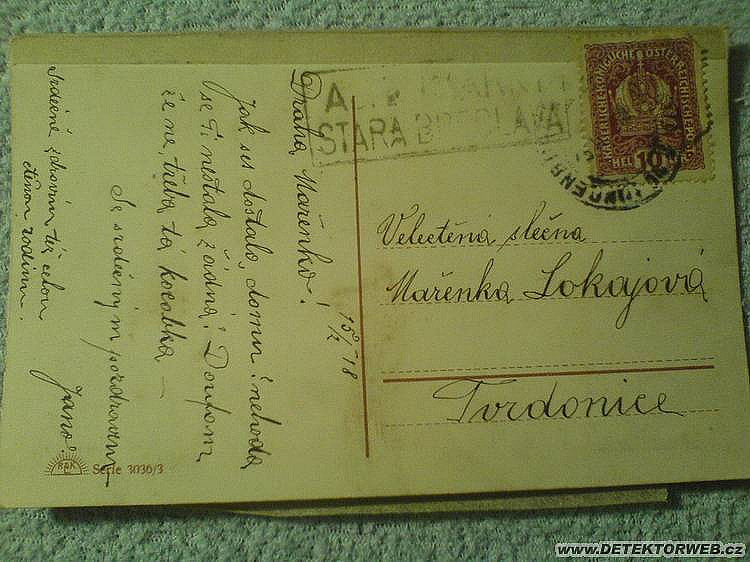 Drahá Mařenko!
15/7 -18
Jak ses dostala domů! nehoda
se Ti nestala žádná! Doufám
že ne třeba tá kocábka —
Se srdečným pozdravem
Jano
Srdečně zdravím též celou
ctěnou rodinu.
STARÁ BŘECLAVA
KAISERLICHE KÖNIGLICHE ÖSTERREICHISCHE POST
HEL 10
Velectěná slečna
Mařenka Lokajová
Tvrdonice
Serie 3036/3
www.DETEKTORWEB.cz